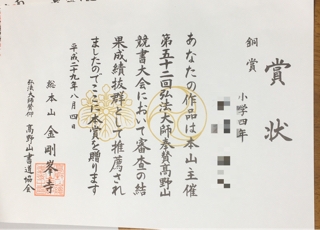 賞状
銅賞
小学四年
あなたの作品は本山主催
第五十二回弘法大師奉賛高野山
競書大会において審査の結
果成績抜群として推薦され
ましたのでここに本賞を贈ります
平成二十九年八月四日
総本山 金剛峯寺
弘法大師奉賛 高野山書道協会